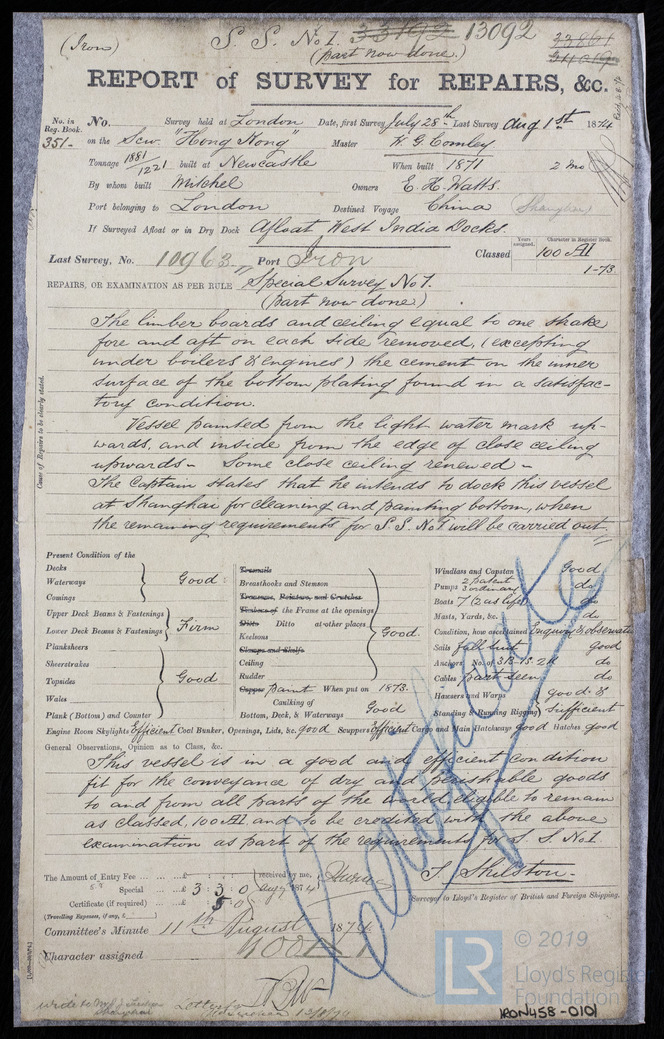 (Iron) S. S. No 1. 33192 13092 33861
(Part now done.) 34019
REPORT of SURVEY for REPAIRS, &c.
No. in Reg. Book. No. Survey held at London Date, first Survey July 28th Last Survey Aug 1st 1874
351 on the Scw. "Hong Kong" Master R. G. Comley
Tonnage 1881/1221 built at Newcastle When built 1871 2 mo
By whom built Mitchel Owners E. H. Watts.
Port belonging to London Destined Voyage China (Shanghai)
If Surveyed Afloat or in Dry Dock Afloat West India Docks.
Years assigned. Character in Register Book.
Last Survey, No. 10963 Port Iron Classed 100 A1
1-73
REPAIRS, OR EXAMINATION AS PER RULE Special Survey No 1.
(Part now done)
The limber boards and ceiling equal to one strake
fore and aft on each side removed, (excepting
under boilers & engines) the cement on the inner
surface of the bottom plating found in a satisfac-
tory condition.
Vessel painted from the light water mark up-
wards, and inside from the edge of close ceiling
upwards - Some close ceiling renewed -
The Captain states that he intends to dock this vessel
at Shanghai for cleaning and painting bottom, when
the remaining requirements for S. S. No 1 will be carried out.
Cause of Repairs to be clearly stated.
Present Condition of the
Decks
Waterways Good
Comings
Upper Deck Beams & Fastenings
Lower Deck Beams & Fastenings Firm
Planksheers
Sheerstrakes
Topsides Good
Wales
Plank (Bottom) and Counter
Treenails
Breasthooks and Stemson
Transoms, Pointers, and Crutches
Timbers of the Frame at the openings
Ditto Ditto at other places
Keelsons Good.
Clamps and Shelfs
Ceiling
Rudder
Copper Paint When put on 1873.
Caulking of
Bottom, Deck, & Waterways Good
Windlass and Capstan Good
Pumps 2 patent 3 ordinary do
Boats 7 (2 as life) do
Masts, Yards, &c. do
Condition, how ascertained Enquiry & observation
Sails full suit good
Anchors No. of 3 B. 1 S. 2 K do
Cables part seen do
Hawsers and Warps good &
Standing & Running Rigging sufficient
Engine Room Skylights Efficient Coal Bunker, Openings, Lids, &c. good Scuppers Efficient Cargo and Main Hatchways good Hatches good
General Observations, Opinion as to Class, &c.
This vessel is in a good and efficient condition
fit for the conveyance of dry and perishable goods
to and from all parts of the world, eligible to remain
as classed, 100 A1. and to be credited with the above
examination as part of the requirements for S. S. No 1.
Certificate
The Amount of Entry Fee ... £ : : received by me,
Special ... £ 3 : 3 : 0 Augt 1874
Certificate (if required) ... £ : 5 : 0
(Travelling Expenses, if any, £ )
T. Shilston.
Surveyor to Lloyd's Register of British and Foreign Shipping.
Committee's Minute 11th August 1874
Character assigned 100 A 1
write to Mr
Shanghai
Letter
© 2019
LR Lloyd's Register
Foundation
IRON458-0101